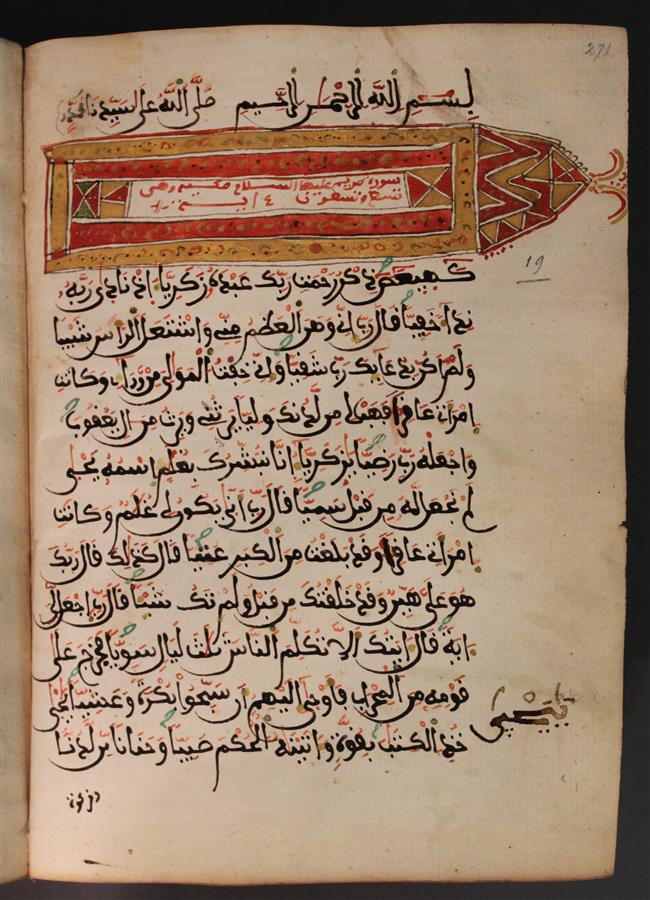 271
بسم الله الرحمن الرحيم صلى الله على سيدنا محمد
سورة مريم عليها السلام مكية وهي
تسع وتسعون ءاية
19
كهيعص ذكر رحمت ربك عبده زكريا إذ نادى ربه
نداء خفيا قال رب إني وهن العظم مني واشتعل الراس شيبا
ولم اكن بدعايك رب شقيا وإني خفت الموالي من وراي وكانت
امراتي عاقرا فهب لي من لدنك وليا يرثني ويرث من ال يعقوب
واجعله رب رضيا يزكريا إنا نبشرك بغلم اسمه يحيى
لم نجعل له من قبل سميا قال رب انى يكون لي غلم وكانت
امراتي عاقرا وقد بلغت من الكبر عتيا قال كذلك قال ربك
هو علي هين وقد خلقتك من قبل ولم تك شيئا قال رب اجعل لي
اية قال ايتك الا تكلم الناس ثلث ليال سويا فخرج على
قومه من المحراب فاوحى اليهم ان سبحوا بكرة وعشيا ييحيى
خذ الكتب بقوة واتينه الحكم صبيا وحنانا من لدنا
وزكوة